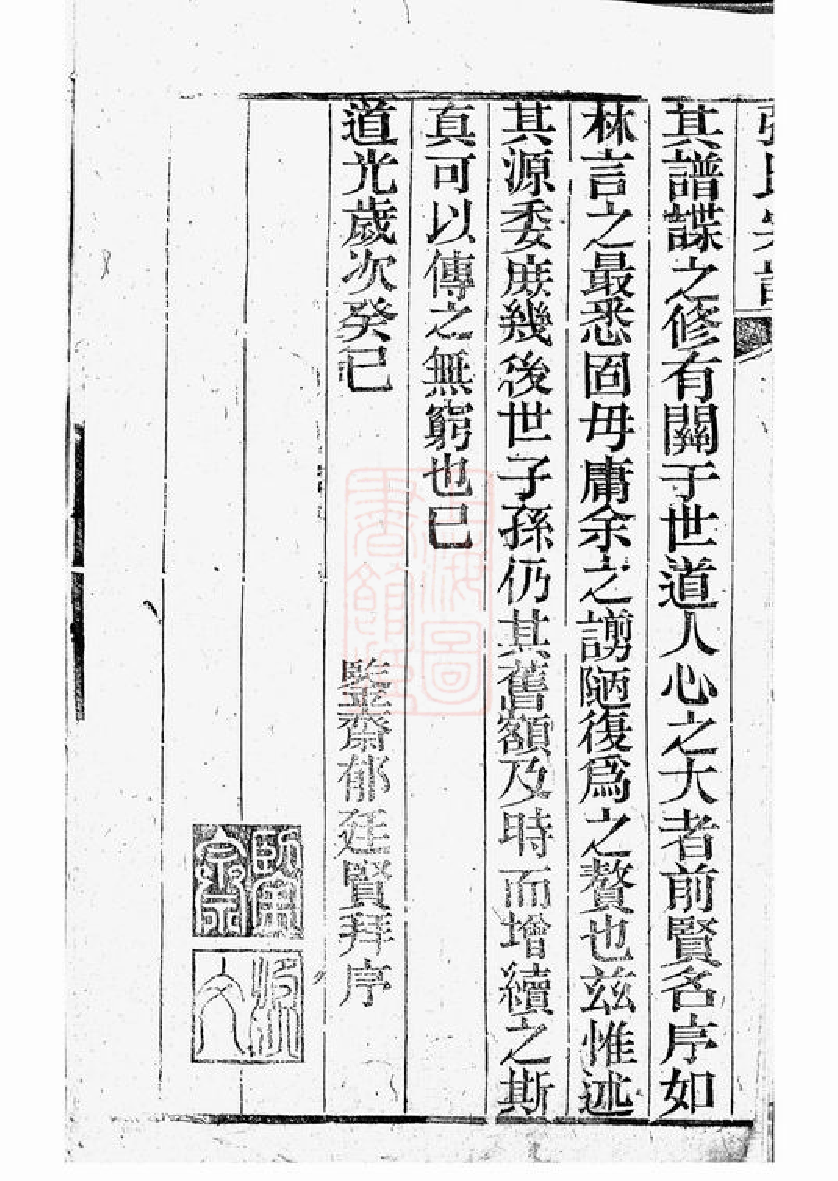 張氏宗譜
其譜諜之修有關于世道人心之大者前賢名序如
林言之最悉固毋庸余之謭陋復爲之贅也玆惟述
其源委庻幾後世子孫仍其舊額及時而增續之斯
真可以傳之無窮也已
道光歲次癸巳
齋郁廷賢拜序
圖
書館